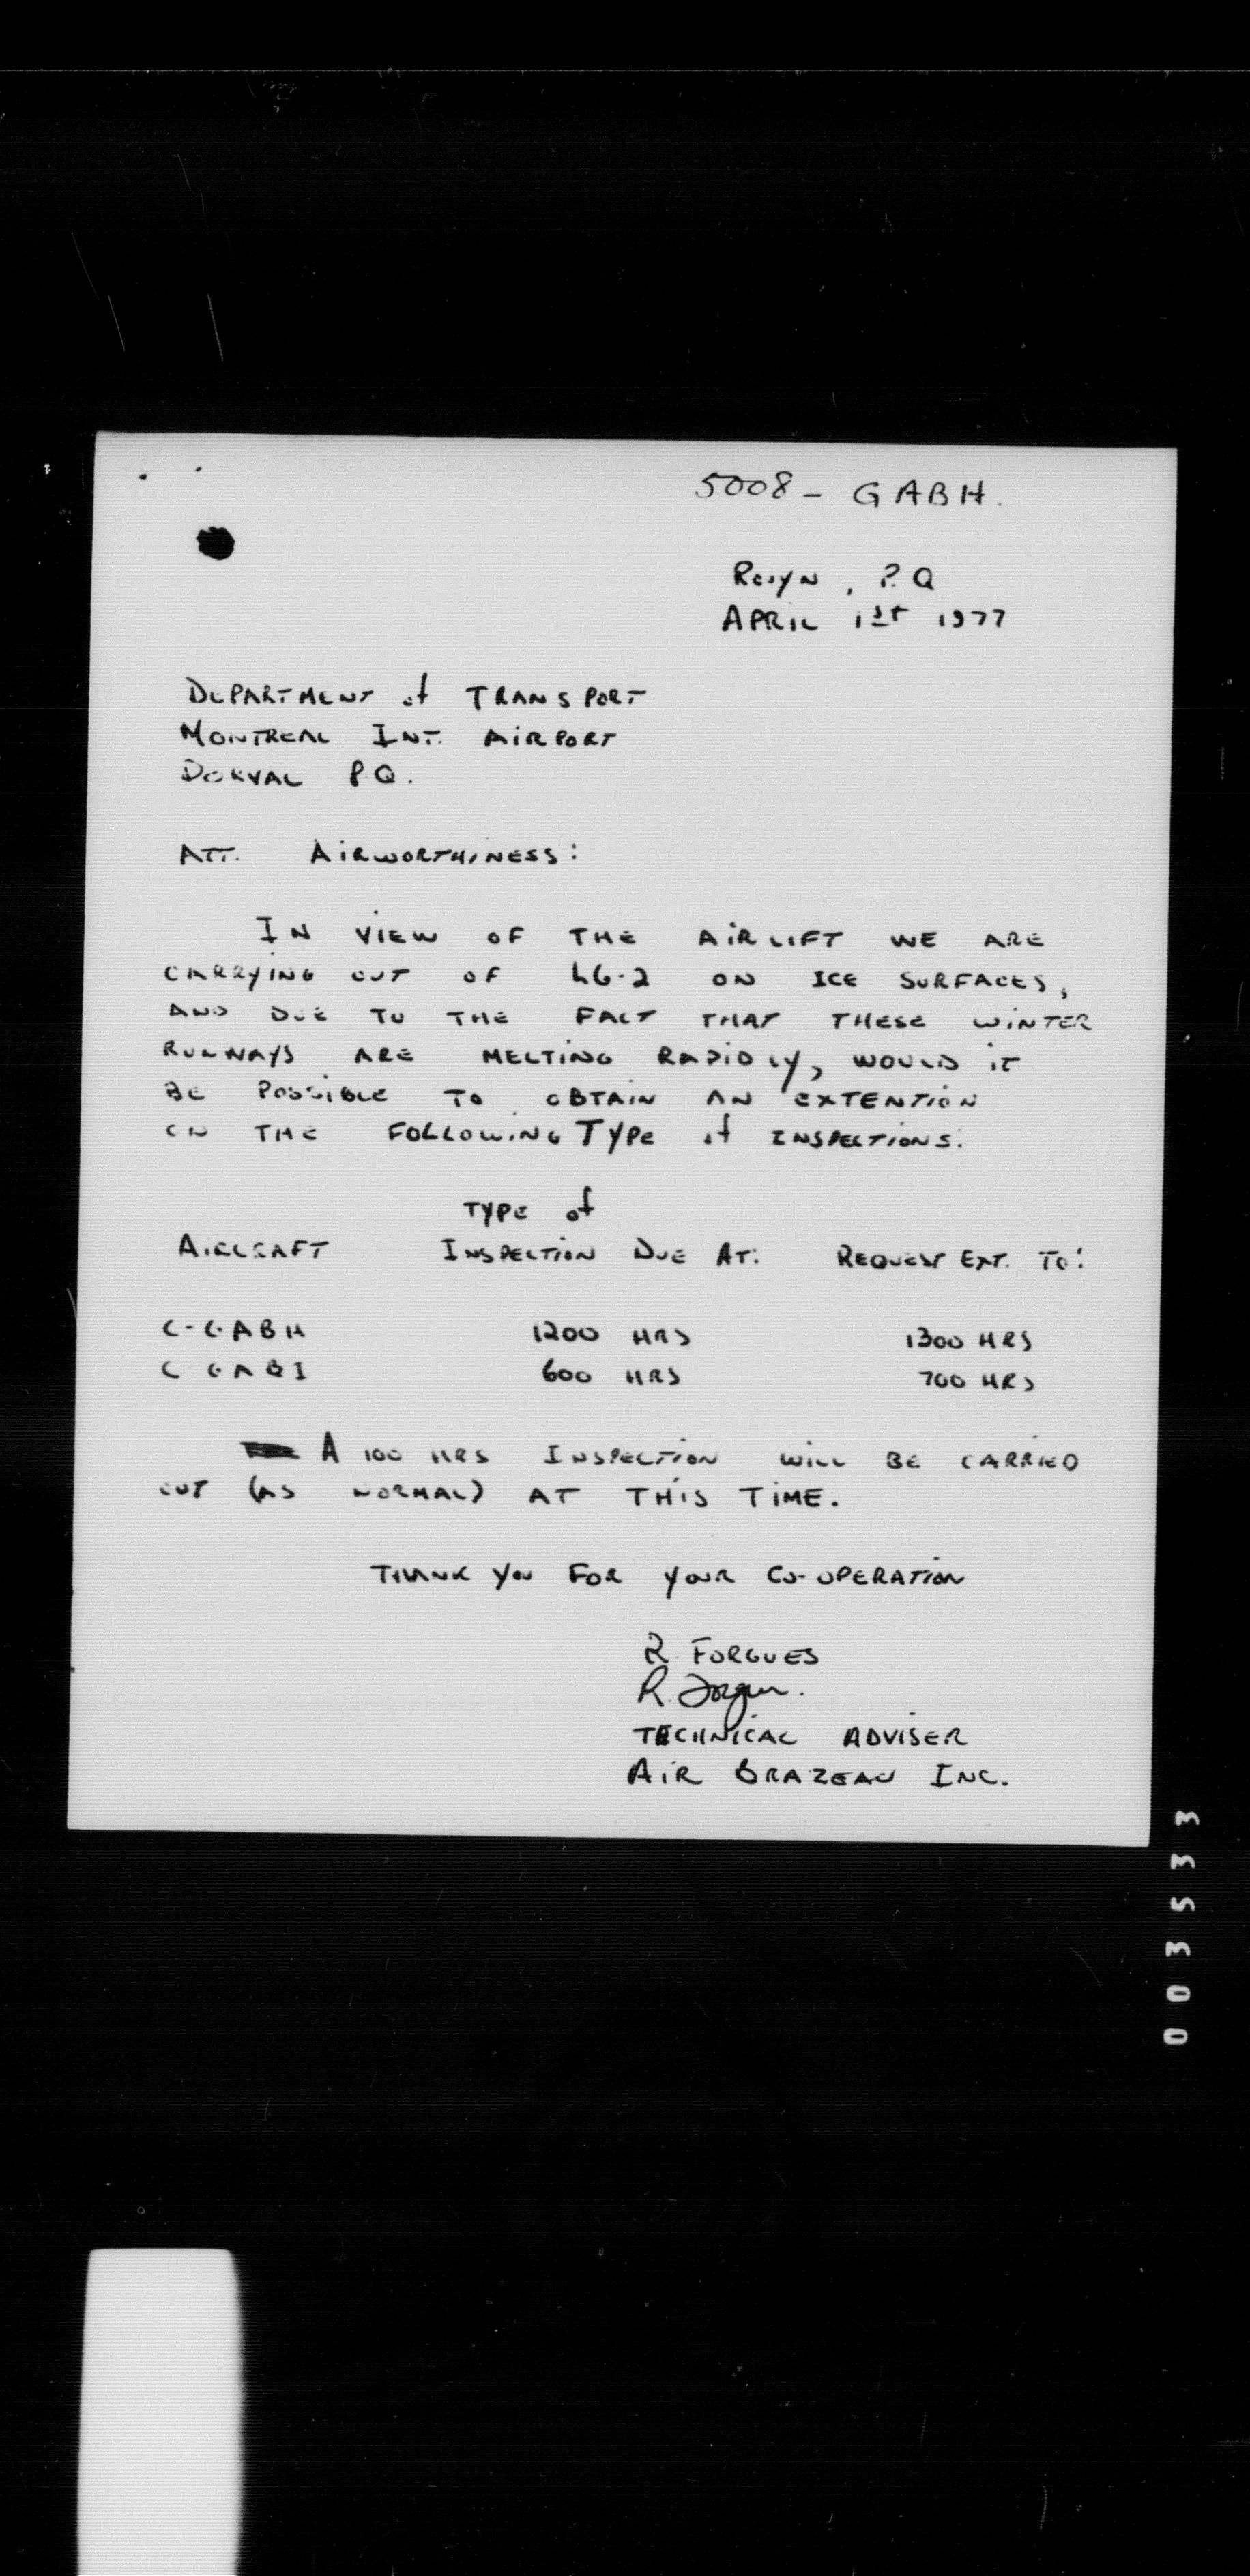 5008 - GABH.
Rouyn, P.Q
APRIL 1st 1977
DEPARTMENT of TRANSPORT
MONTREAL INT. AIRPORT
DORVAL P.Q.
ATT. AIRWORTHINESS:
IN VIEW OF THE AIRLIFT WE ARE
CARRYING OUT OF LG-2 ON ICE SURFACES,
AND DUE TO THE FACT THAT THESE WINTER
RUNWAYS ARE MELTING RAPIDLY, WOULD IT
BE POSSIBLE TO OBTAIN AN EXTENTION
ON THE FOLLOWING TYPE of INSPECTIONS.
TYPE of
AIRCRAFT INSPECTION DUE AT: REQUEST EXT. TO:
C-GABH 1200 HRS 1300 HRS
C GABI 600 HRS 700 HRS
A 100 HRS INSPECTION WILL BE CARRIED
OUT (AS NORMAL) AT THIS TIME.
THANK YOU FOR YOUR CO-OPERATION
R. FORGUES
R. Forgues.
TECHNICAL ADVISER
AIR BRAZEAU INC.
003533